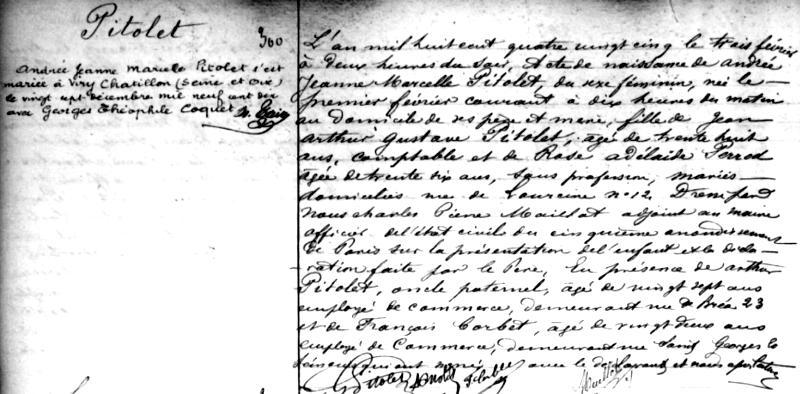 Pitolet
300
Andrée Jeanne Marcelle Pitolet s'est
mariée à Viry Chatillon (Seine et Oise)
le vingt sept décembre mil neuf cent dix
avec Georges Théophile Coquet
L'an mil huit cent quatre vingt cinq le trois février
à deux heures du soir, Acte de naissance de Andrée
Jeanne Marcelle Pitolet, du sexe féminin, née le
premier février courant à dix heures du matin
au domicile de ses père et mère, fille de Jean
Arthur Gustave Pitolet, agé de trente huit
ans, comptable et de Rose Adélaide Perrod
agée de trente six ans, sans profession, mariés
domiciliés rue de Lourcine n° 12. Dressé par
Nous Charles Pierre Maillat adjoint au maire
officier de l'Etat civil du cinquième arrondissement
de Paris sur la présentation de l'enfant et la décla-
ration faite par le Père, En présence de Arthur
Pitolet, oncle paternel, agé de vingt sept ans
employé de commerce, demeurant rue de Bréa 23
et de François Corbet, agé de vingt deux ans
employé de Commerce, demeurant rue Saint Georges 60
témoins qui ont signé avec le déclarant et nous après lecture
Pitolet